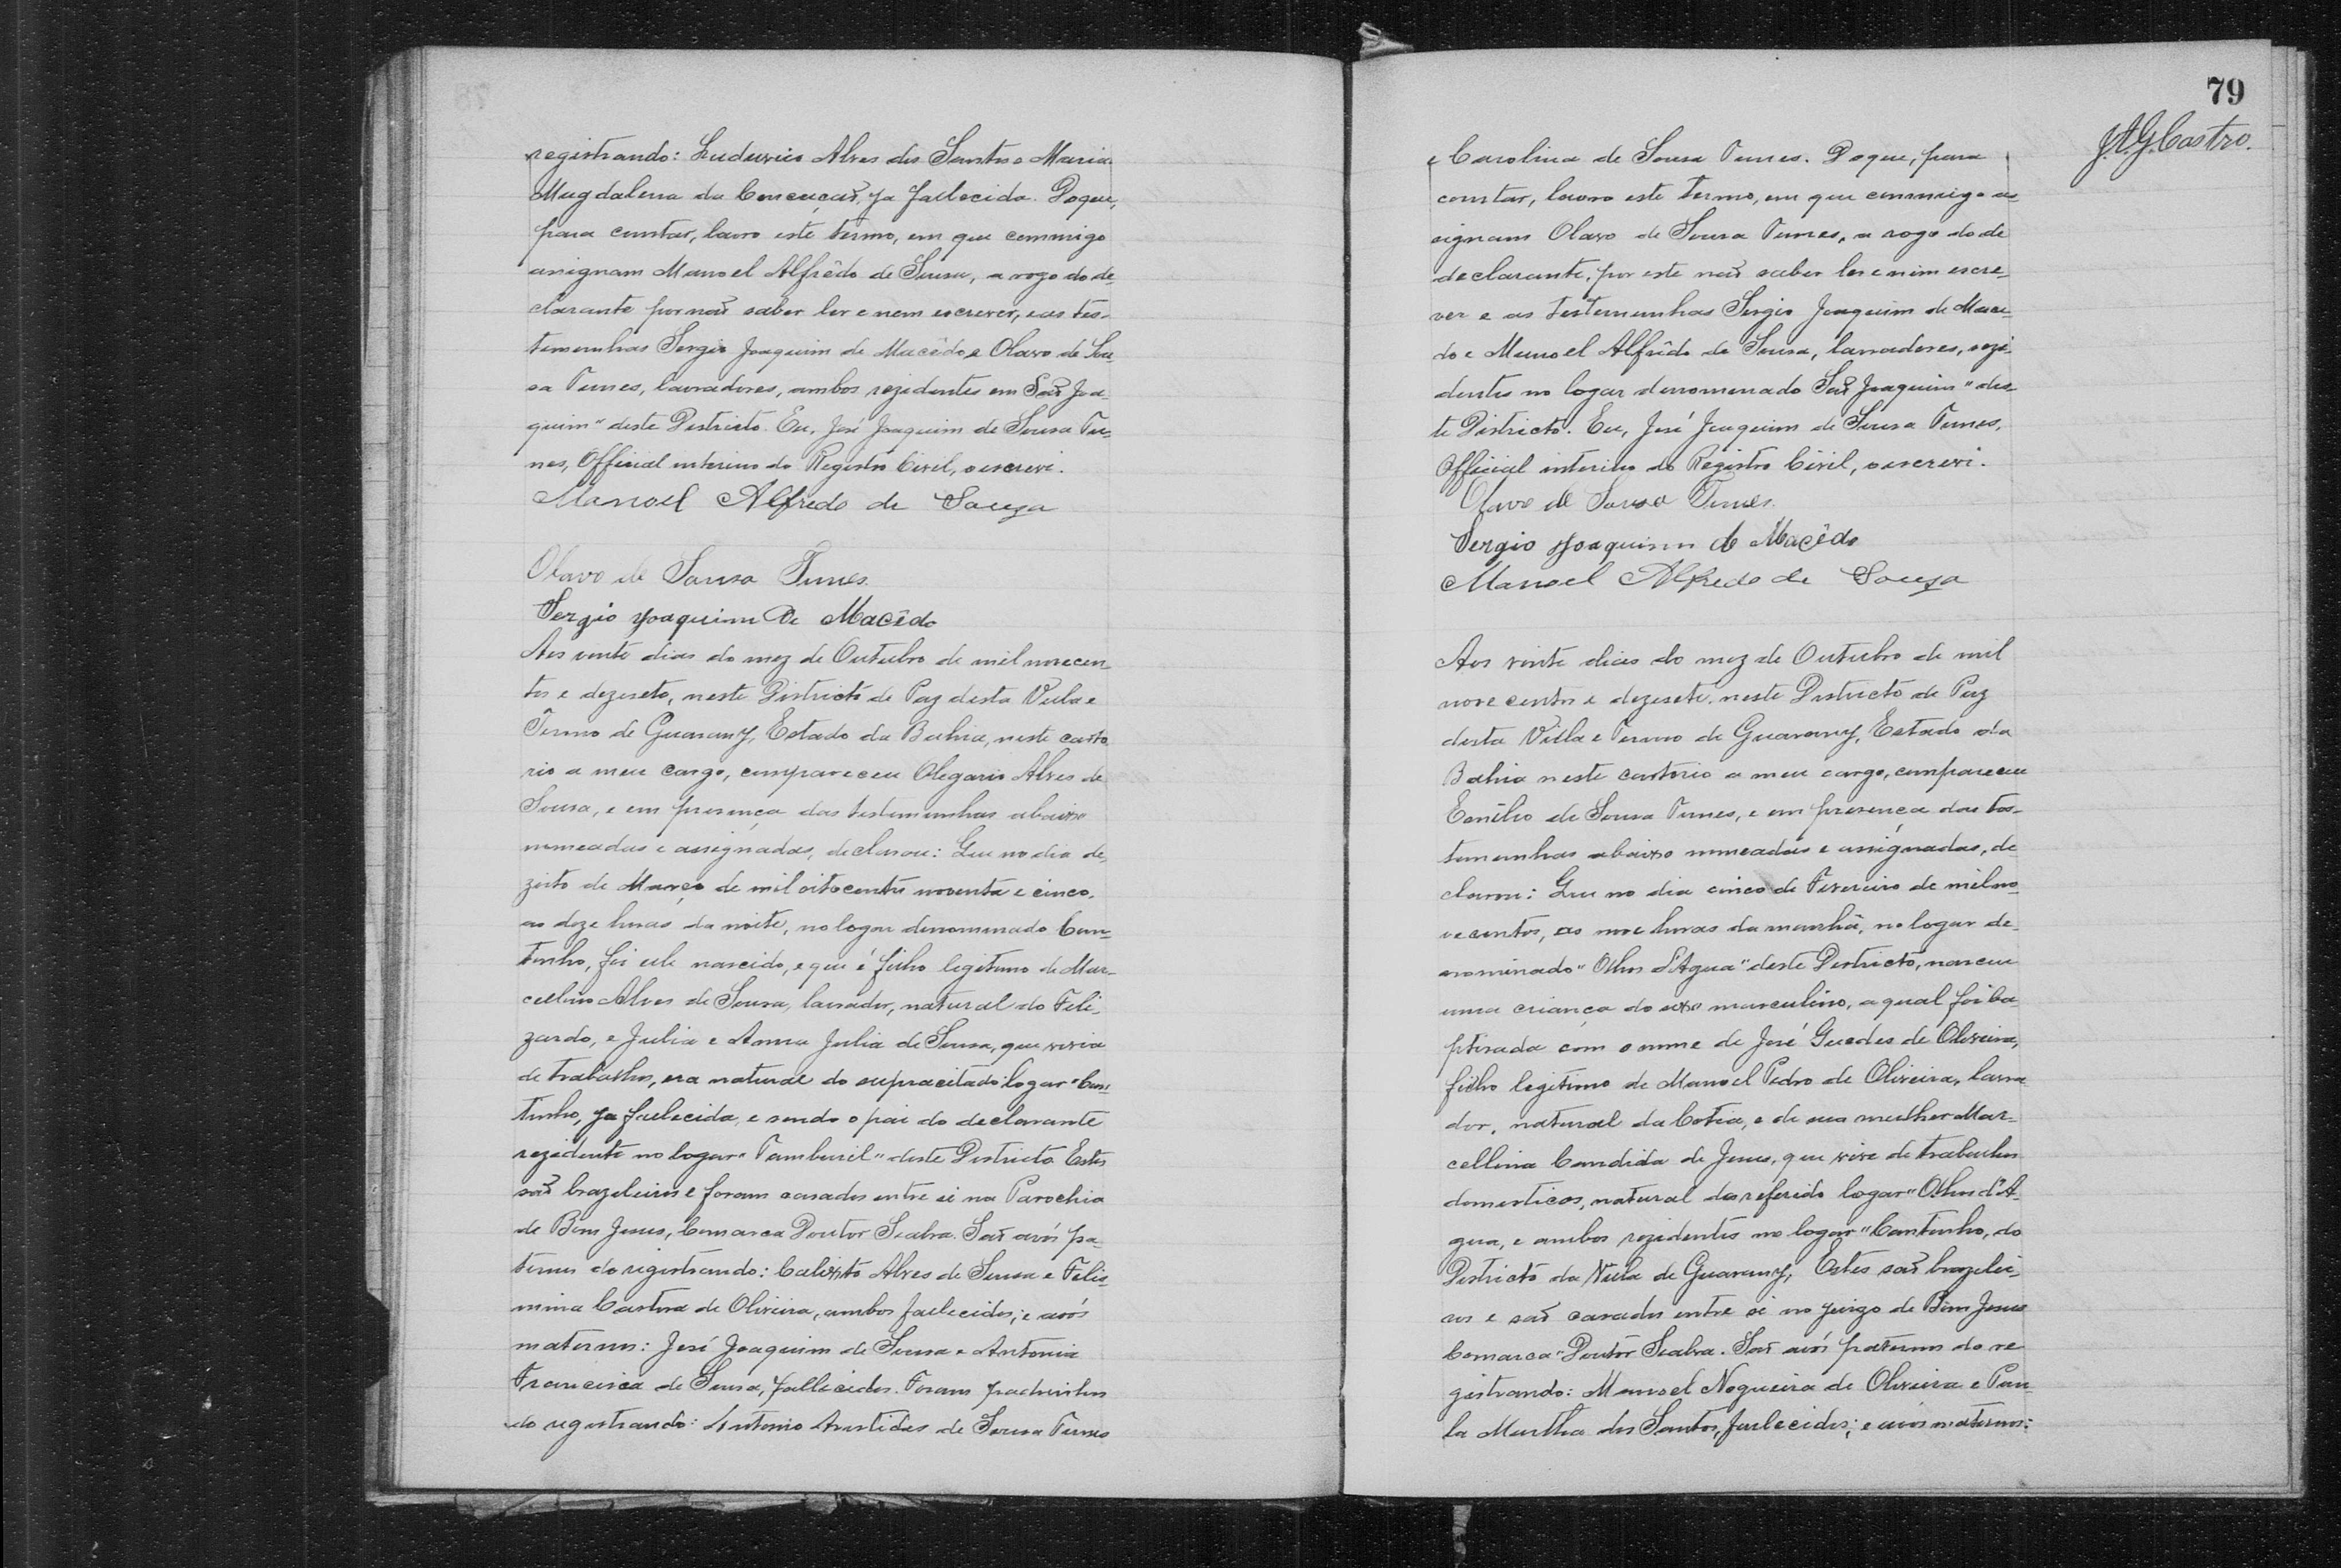 registrando: Ludurico Alves dos Santos e Maria
Magdalena da Conceição, ja fallecida. Do que,
para constar, lavro este termo, em que commigo
assignam Manoel Alfrêdo de Sousa, a rogo do de-
clarante por não saber ler e nem escrever, e as tes-
temunhas Sergio Joaquim de Macêdo e Olavo de Sou
sa Tunes, lavradores, ambos rezidentes em São Joa-
quim" deste Districto. Eu, José Joaquim de Sousa Tu-
nes, Official interino do Registro Civil, o escrevi.
Manoel Alfredo de Souza
Olavo de Sousa Tunes.
Sergio Joaquim de Macêdo
Aos vinte dias do mez de Outubro de mil novecen
tos e dezesete, neste Districto de Paz desta Villa e
Termo de Guarany, Estado da Bahia, neste carto
rio a meu cargo, compareceu Olegario Alves de
Sousa, e em presença das testemunhas abaixo
nomeadas e assignadas, declarou: Que no dia de-
zoito de Março de mil oitocentos noventa e cinco,
as doze horas da noite, no logar denominado Can-
tinho, foi elle nascido, e que é filho legitimo de Mar-
cellino Alves de Sousa, lavrador, natural do Feli-
zardo, e Julia e Anna Julia de Sousa, que vivia
de trabalhos, era natural do supracitado logar "Can-
tinho, ja fallecida, e sendo o pai do declarante
rezidente no logar "Tamburil" deste Districto. Estes
são brazileiros e foram casados entre si na Parochia
de Bom Jesus, Comarca Doutor Seabra. São avós pa-
ternos do registrando: Calixto Alves de Sousa e Felis
mina Castora de Oliveira, ambos fallecidos; e avós
maternos: José Joaquim de Sousa e Antonia
Francisca de Sousa, fallecidos. Foram padrinhos
do registrando: Antonio Aristides de Sousa Tunes
79
J.A.G.Castro.
e Carolina de Sousa Tunes. Do que, para
constar, lavro este termo, em que commigo as
signam Olavo de Sousa Tunes, a rogo do de
declarante, por este não saber ler e nim escre-
ver e as testemunhas Sergio Joaquim de Mace-
do e Manoel Alfrêdo de Sousa, lavradores, rezi-
dentes no logar denominado São Joaquim" des-
te Districto. Eu, José Joaquim de Sousa Tunes,
Official interino do Registro Civil, o escrevi.
Olavo de Sousa Tunes.
Sergio Joaquim de Macêdo
Manoel Alfredo de Souza
Aos vinte dias do mez de Outubro de mil
novecentos e dezesete, neste Districto de Paz
desta Villa e Termo de Guarany, Estado da
Bahia neste cartorio a meu cargo, compareceu
Emilio de Sousa Tunes, e em presença das tes-
temunhas abaixo nomeadas e assignadas, de
clarou: Que no dia cinco de Fevereiro de mil no
vecentos, as nove horas da manhã, no logar de-
nominado "Olhos d'Agua" deste Districto, nasceu
uma criança do sexo masculino, a qual foi ba
ptisada com o nome de José Guedes de Oliveira,
filho legitimo de Manoel Pedro de Oliveira, lavra
dor, natural da Cotia, e de sua mulher Mar-
cellina Candida de Jesus, que vive de trabalhos
domesticos, natural do referido logar "Olhos d'A-
gua, e ambos rezidentes no logar "Cantinho, do
Districto da Villa de Guarany, Estes são brazilei-
ros e são casados entre si no juizo de Bom Jesus
Comarca "Doutor Seabra. São avós paternos do re
gistrando: Manoel Nogueira de Oliveira e Pau-
la Martha dos Santos, fallecidos; e avós maternos: